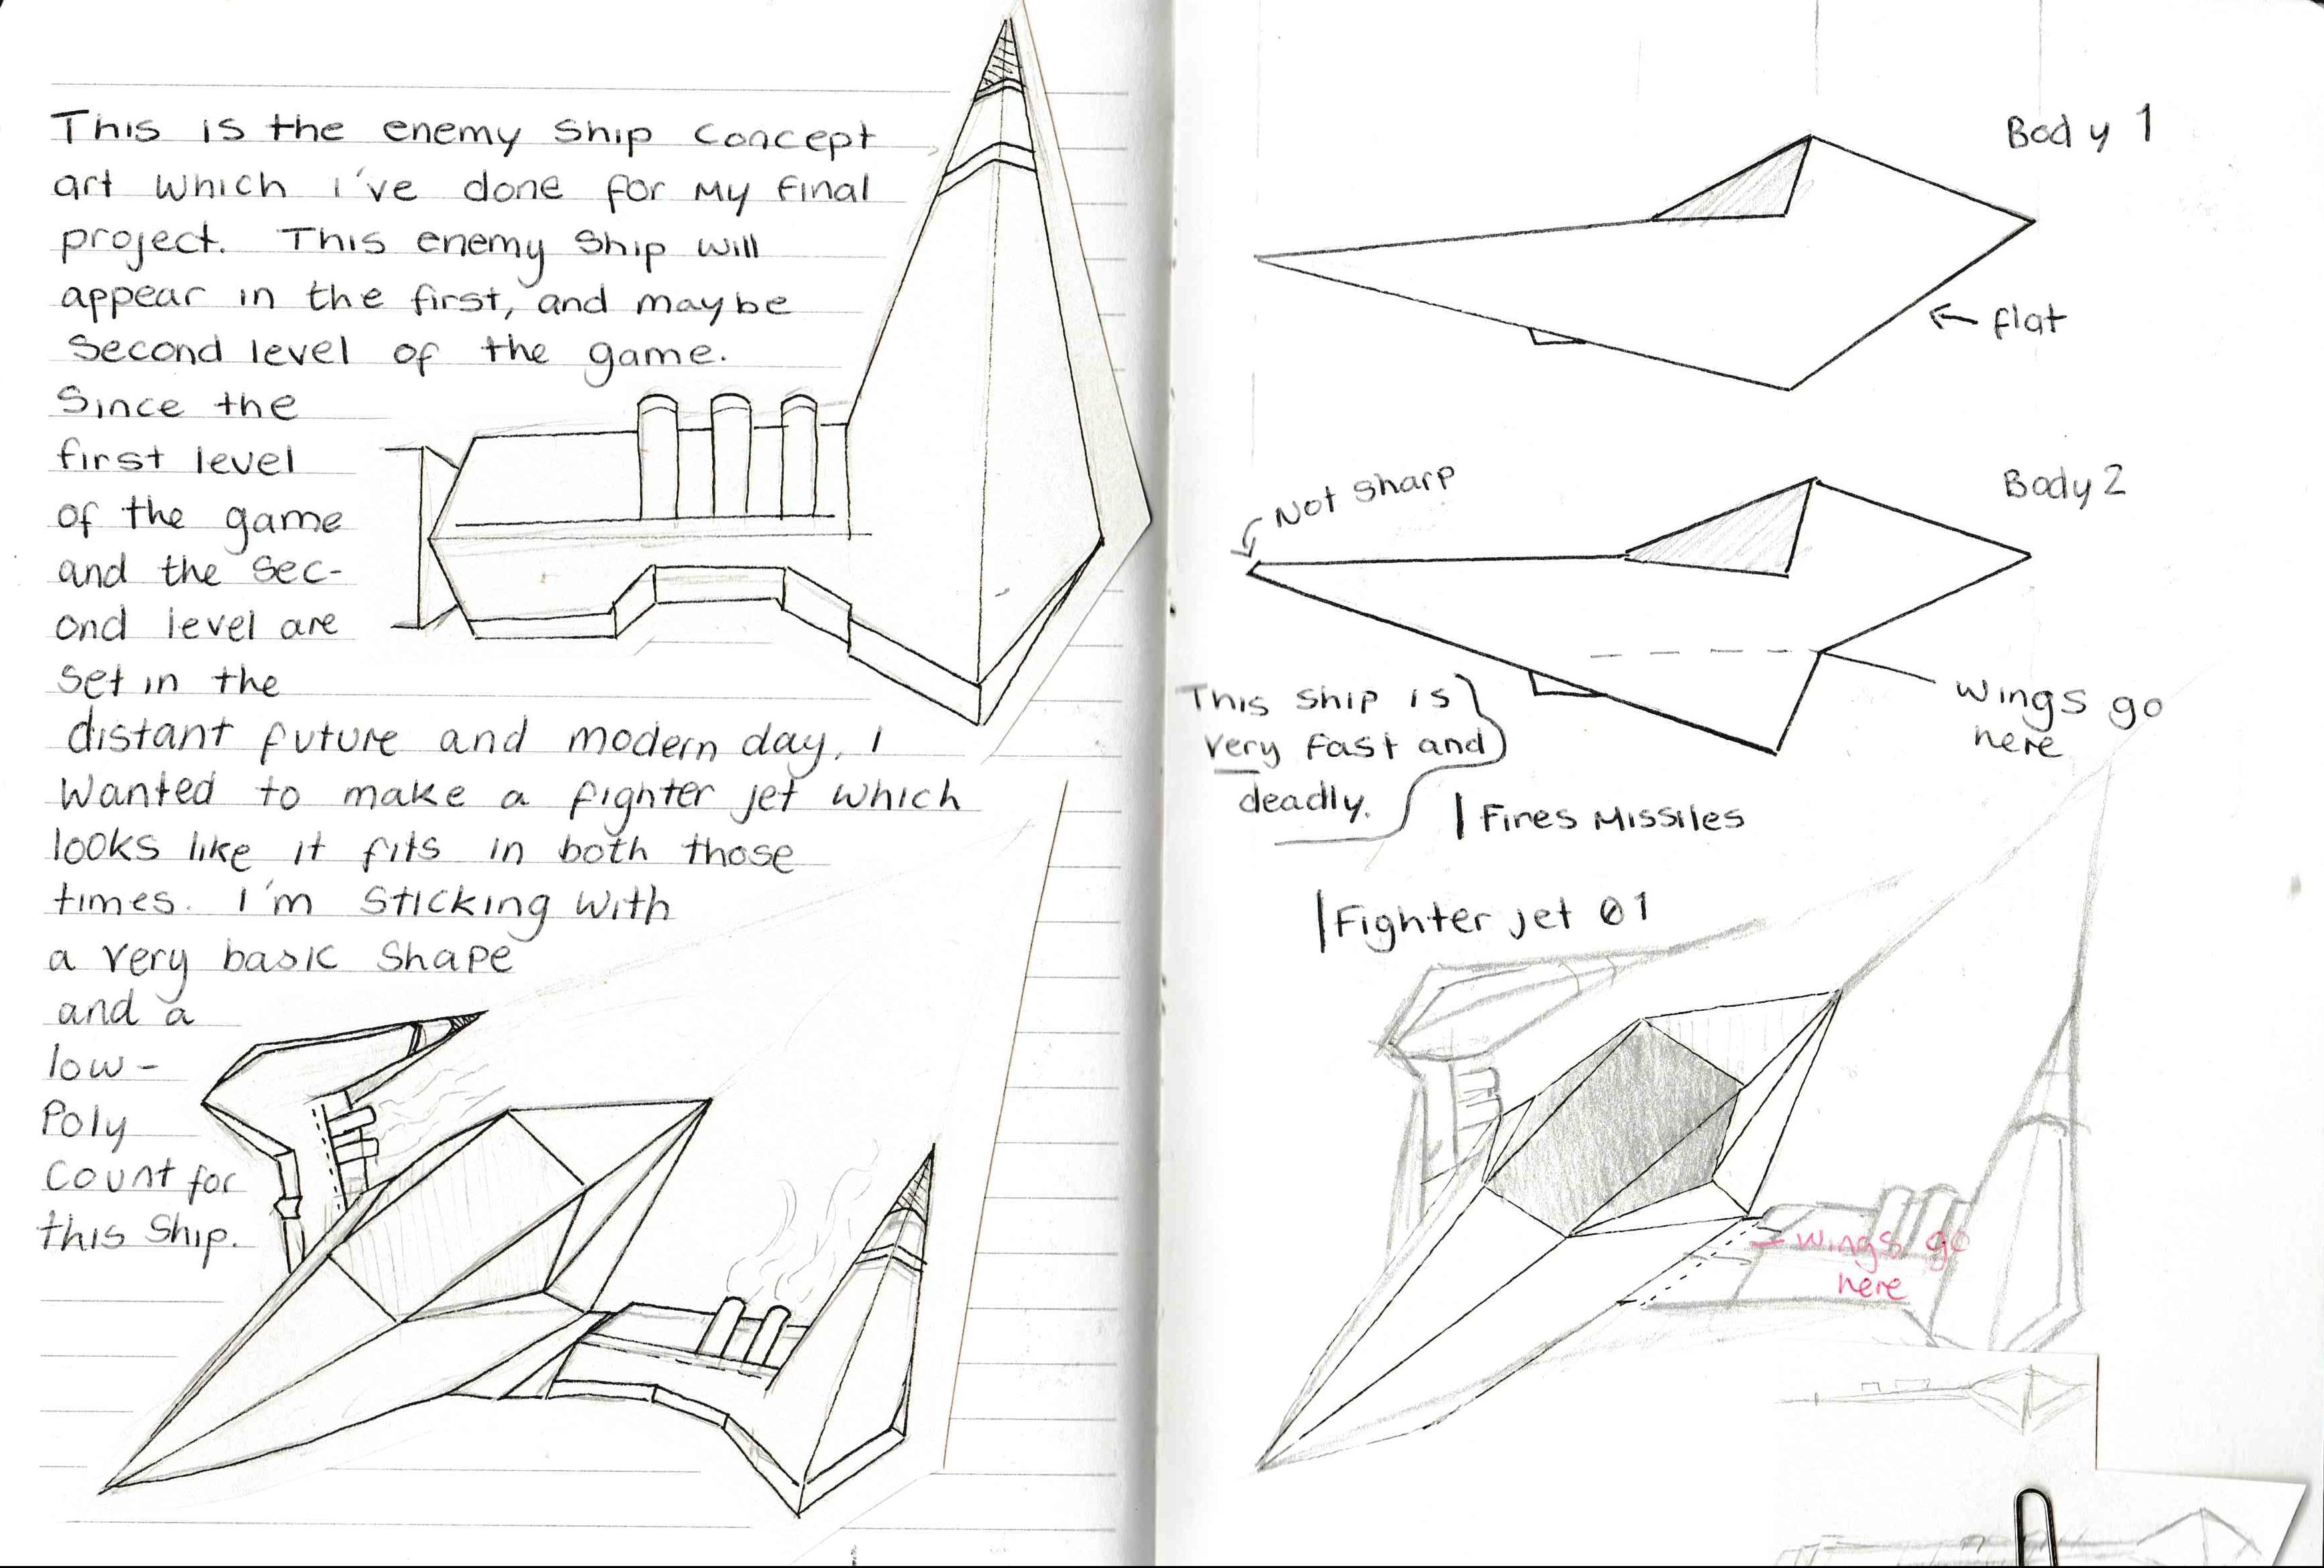 This is the enemy ship concept
art which i've done for my final
project. This enemy ship will
appear in the first, and maybe
second level of the game.
Since the
first level
of the game
and the sec-
ond level are
set in the
distant future and modern day, I
wanted to make a fighter jet which
looks like it fits in both those
times. I'm sticking with
a very basic shape
and a
low-
Poly
count for
this ship.
Body 1
← flat
Not sharp
Body 2
wings go
here
This ship is
very fast and
deadly.
| Fires Missiles
| Fighter jet 01
wings go
here